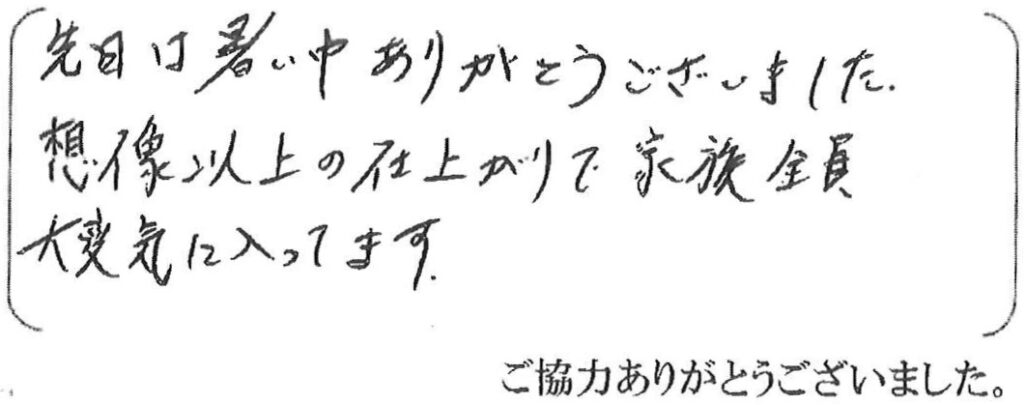 先日は暑い中ありがとうございました.
想像以上の仕上がりで家族全員
大変気に入ってます.
ご協力ありがとうございました。